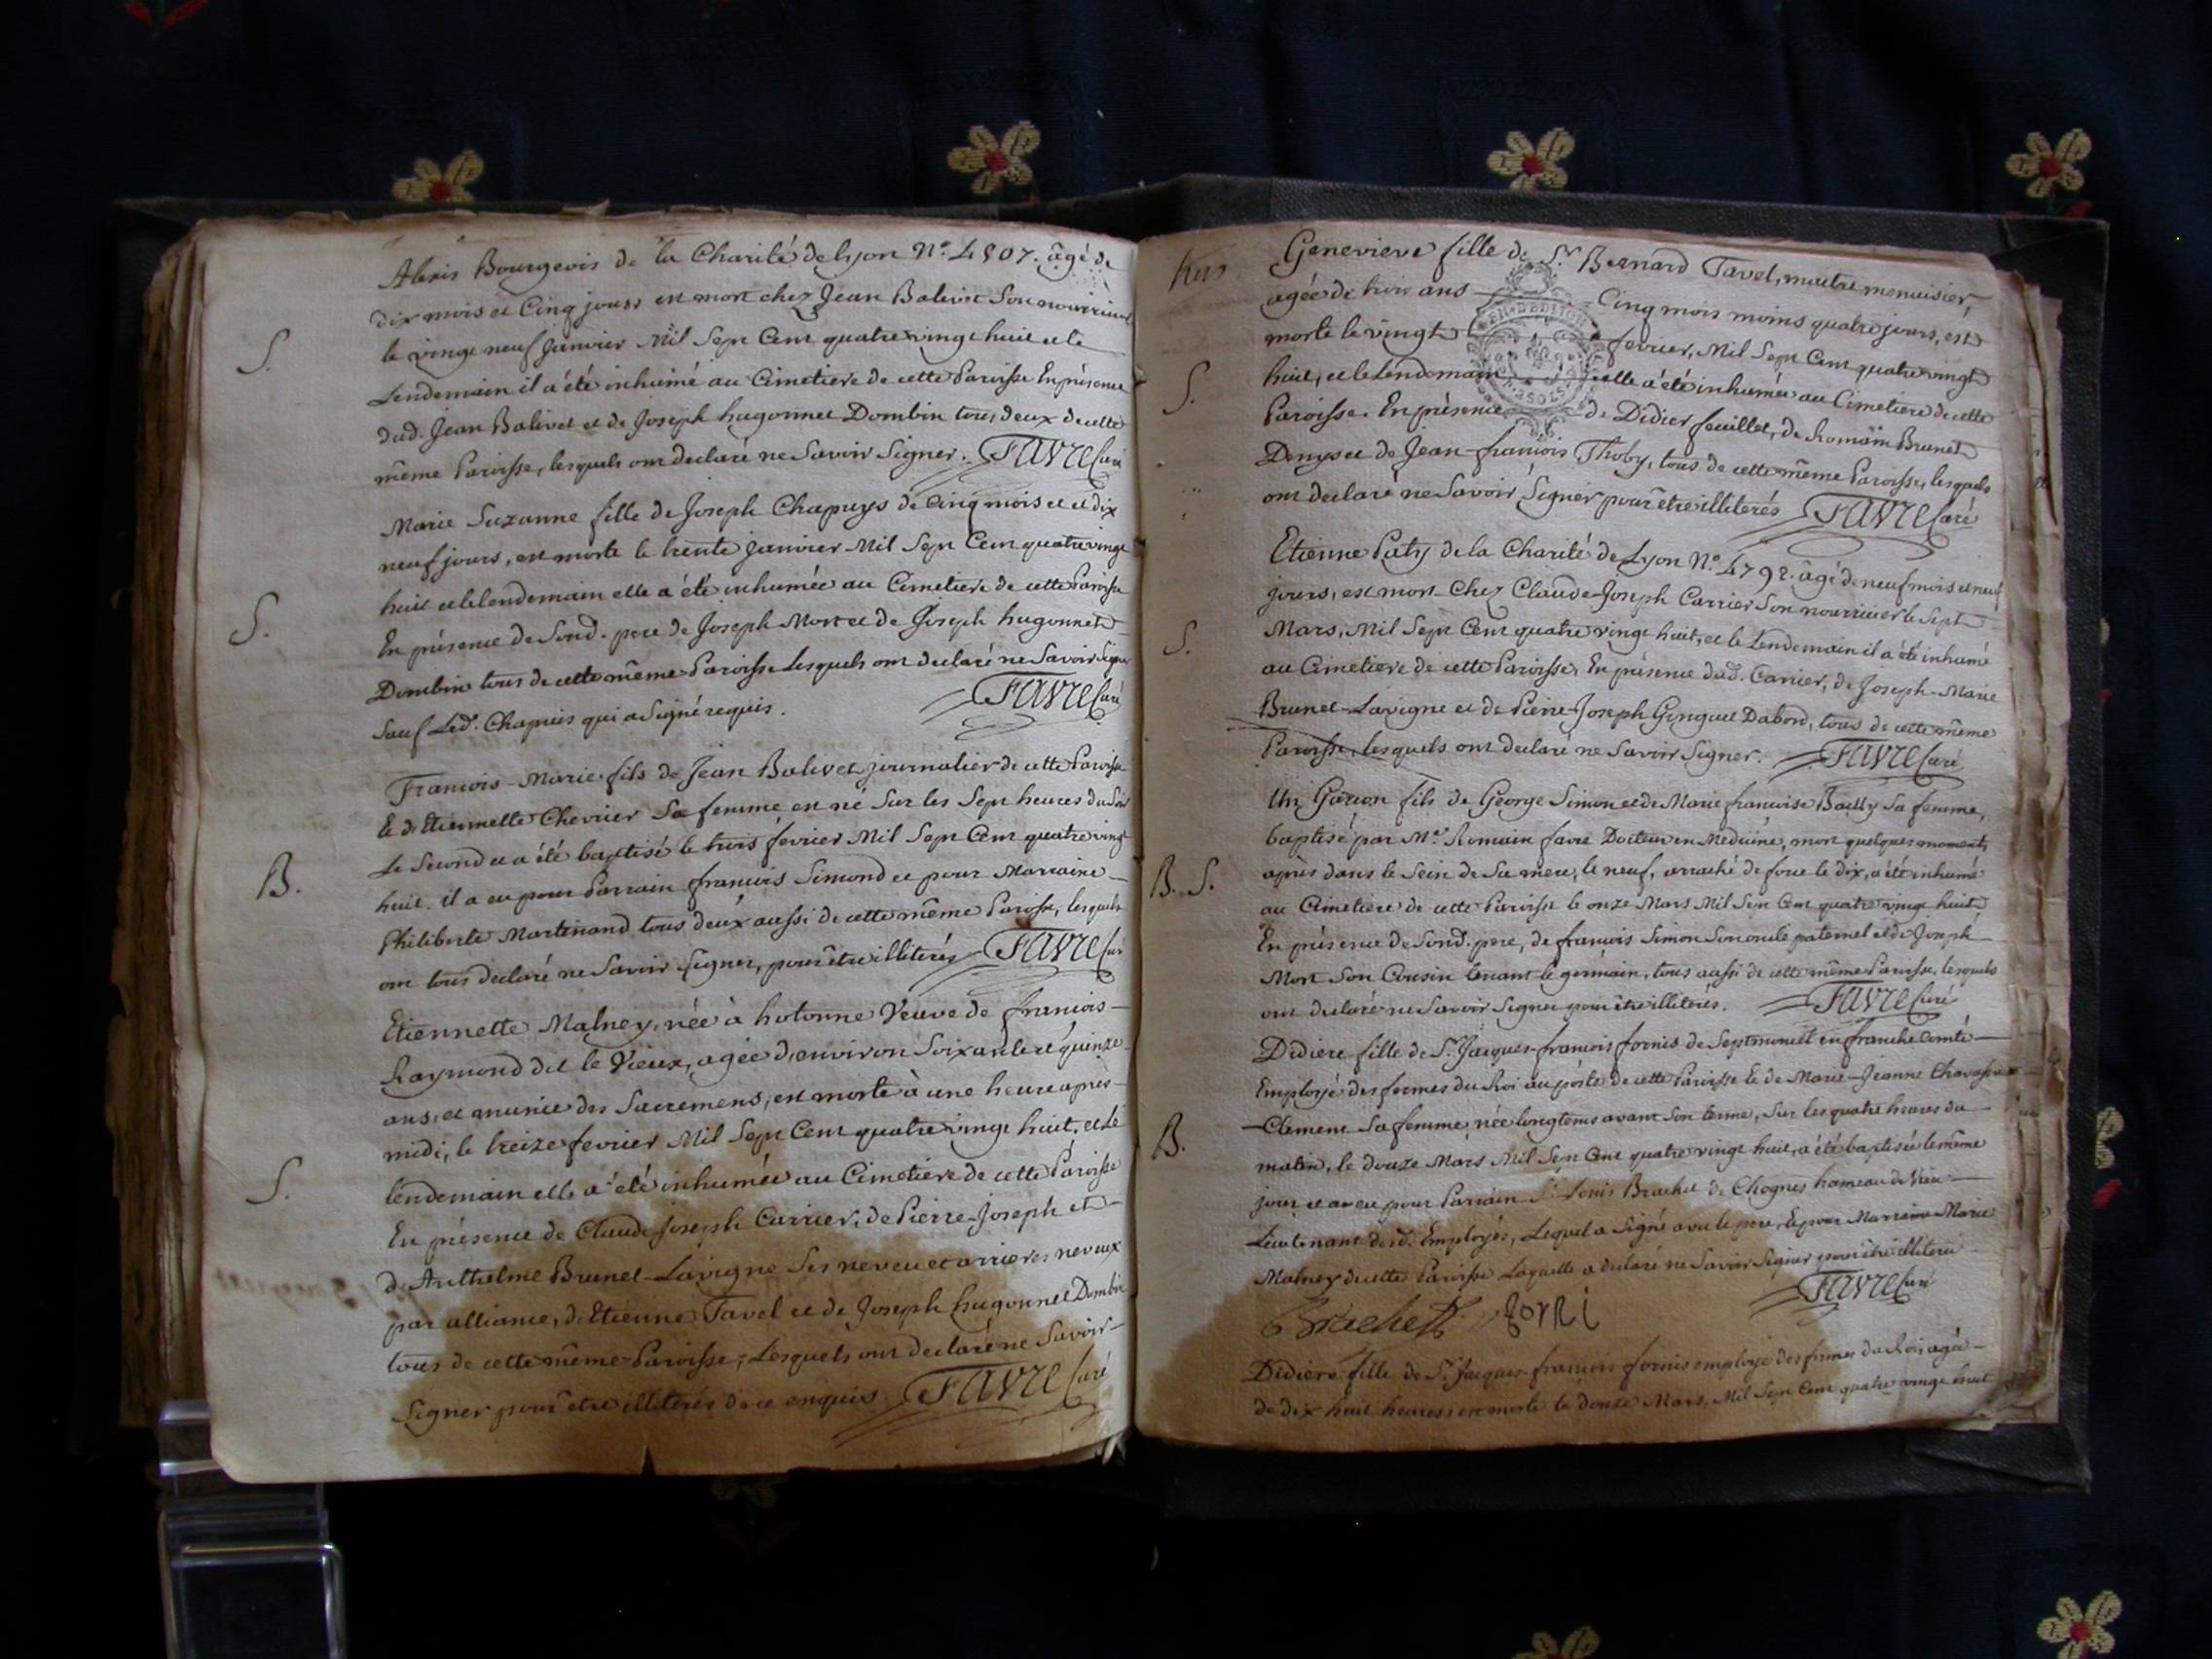 Alexis Bourgeois de la Charité de lyon N.º 4807. âgé de
dix mois et Cinq jours est mort chez Jean Balivet Son nourricier
le vingt neuf Janvier Mil Sept Cent quatre vingt huit et le
S.
Lendemain il a été inhumé au Cimetiere de cette Paroisse En présence
dud. Jean Balivet et de Joseph hugonnet Dombin tous deux de cette
même Paroisse, lesquels ont declaré ne Savoir Signer. FAVRE Curé
Marie Suzanne fille de Joseph Chapuys de Cinq mois et et dix
neuf jours, est morte le trente janvier Mil Sept Cent quatre vingt
huit et le lendemain elle a été inhumée au Cimetiere de cette Paroisse
S.
En présence de Sond. pere de Joseph Mort et de Joseph hugonnet
Dombin tous de cette même Paroisse Lesquels ont declaré ne Savoir Signer
Sauf Led. Chapuis qui a Signé requis. FAVRE Curé
Francois-Marie fils de Jean Balivet journalier de cette Paroisse
Et d'Etiennette Chevrier Sa femme est né Sur les Sept heures du Soir
Le Second et a été baptisé le trois fevrier Mil Sept Cent quatre vingt
B.
huit. il a eu pour Parrain francois Simond et pour Marraine
Philiberte Martinand tous deux aussi de cette même Paroisse, lesquels
ont tous declaré ne Savoir Signer, pour être illiterés FAVRE Curé
Etiennette Malney, née à hotonne Veuve de francois
Raymond dit le Vieux, agée d'environ Soixante et quinze
ans, et munie des Sacremens, est morte à une heure après
midi, le treize fevrier Mil Sept Cent quatre vingt huit, et Le
S.
lendemain elle a été inhumée au Cimetiere de cette Paroisse
En présence de Claude-Joseph Carrier, de Pierre-Joseph et
d'Anthelme Brunet-Lavigne Ses neveu et arrieres neveux
par alliance, d'Etienne Tavel et de Joseph hugonnet Dombin
tous de cette même Paroisse, Lesquels ont declaré ne Savoir
Signer pour être illiterés de ce enquis FAVRE Curé
Genevieve fille de S.r Bernard Tavel, maitre menuisier,
agée de trois ans Cinq mois moins quatre jours, est
morte le vingt fevrier, Mil Sept Cent quatre vingt
huit, et le Lendemain elle a été inhumée au Cimetiere de cette
S.
Paroisse. En présence de Didier feuillet, de Romain Brunet
Denys et de Jean-francois Thoby, tous de cette même Paroisse, lesquels
ont declaré ne Savoir Signer pour être illiterés FAVRE Curé
Etienne Paty de la Charité de Lyon N.º 4792. âgé de neuf mois et neuf
jours, est mort Chez Claude-Joseph Carrier Son nourricier le Sept
S.
Mars, Mil Sept Cent quatre vingt huit, et le Lendemain il a été inhumé
au Cimetiere de cette Paroisse, En présence dud. Carrier, de Joseph-Marie
Brunet-Lavigne et de Pierre-Joseph Ginguet Dabord, tous de cette même
Paroisse, lesquels ont declaré ne Savoir Signer. FAVRE Curé
Un Garcon fils de George Simon et de Marie francoise Bailly Sa femme,
baptisé par M.e Romain favre Docteur en Medecine, mort quelques moments
B. S.
après dans le Sein de Sa mere, le neuf, arraché de force le dix, a été inhumé
au Cimetiere de cette Paroisse le onze Mars Mil Sept Cent quatre vingt huit
En présence de Sond. pere, de francois Simon Son oncle paternel et de Joseph
Mort Son Cousin tenant le germain, tous aussi de cette même Paroisse, lesquels
ont declaré ne Savoir Signer pour être illiterés. FAVRE Curé
Didiere fille de S.r Jacques-francois fornis de Septmoncel en franche Comté
Employé des fermes du Roi au poste de cette Paroisse Et de Marie-Jeanne
Clement Sa femme, née longtems avant Son terme, Sur les quatre heures du
B.
matin, le douze Mars Mil Sept Cent quatre vingt huit, a été baptisée le même
jour et a eu pour Parrain S.r Louis Brachet de Chognes hameau de
Lieutenant desd. Employés, Lequel a Signé avec le pere, Et pour Marraine Marie
Malney de cette Paroisse Laquelle a declaré ne Savoir Signer pour être illiterée
FAVRE Curé
Brachett forni
Didiere fille de S.r Jacques-francois fornis employé des fermes du Roi, agée
de dix huit heures est morte le douze Mars, Mil Sept Cent quatre vingt huit